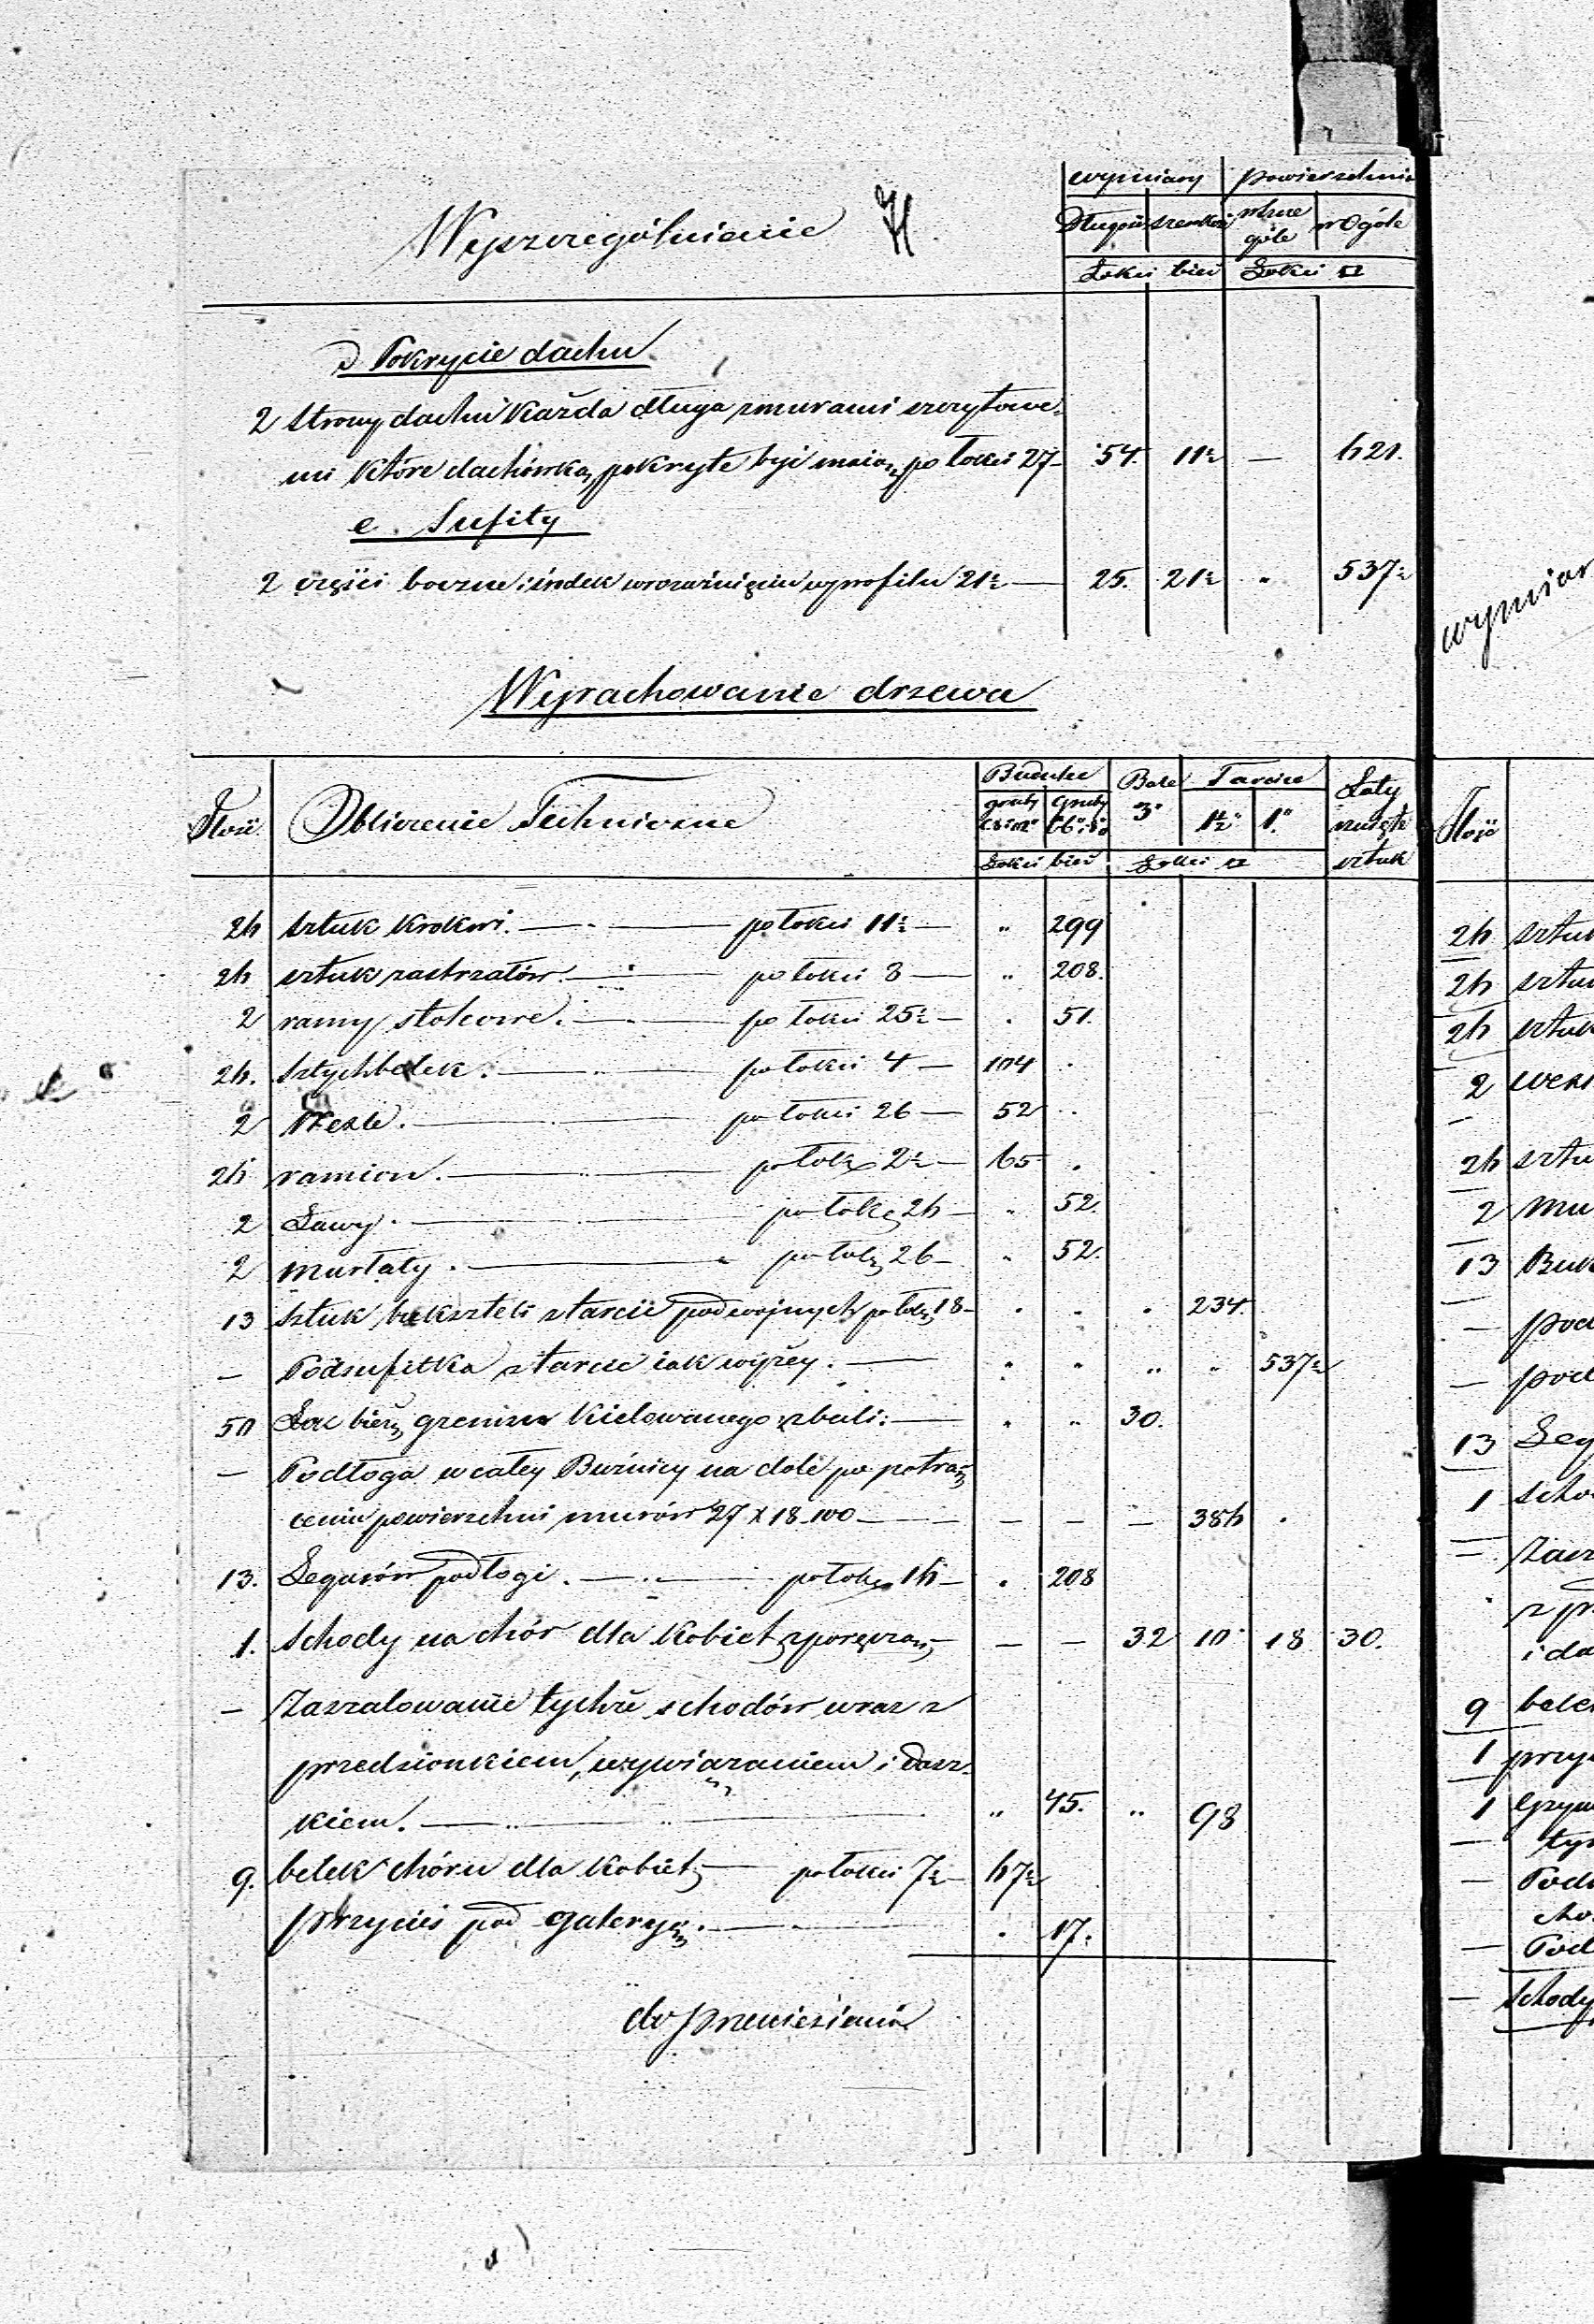 wymiary powierzchnia
Wyszczególnienie
Długość szerokość w szczególe w Ogóle
Łokci bież Łokci □
d Pokrycie dachu
2 strony dachu każda długa z murami szczytowe-
mi które dachówką pokryte być maią po łokci 27 — 54. 11½ — 621.
e. Sufity
2 części boczne i środek w rozwinięciu wyprofilu 21½ — 25. 21½ " 537½
wymiar
Wyrachowanie drzewa
Ilość Obliczenie Techniczne Budulec Bale 3" Tarcice 1½" 1" Łaty sztuk Ilość
Łokci bież Łokci □
26 sztuk krokwi. — po łokci 11½ — " 299
26 sztuk zastrzałów. — po łokci 8 — " 208.
2 ramy stolcowe. — po łokci 25½ — . 51.
26. sztychbelek. — po łokci 4 — 104 .
2 — po łokci 26 — 52 "
26 ramion. — po łok 2½ — 65 .
2 Ławy. — po łok 26 — " 52.
2 murłaty. — po łok 26 — " 52.
13 sztuk bukszteli z tarcic podwojnych po łok 18 — . . . 234.
— Podsufitka z tarcic iak wyżey. — " " " " 537½
50 Łok bież gzemsu kielowanego z bali. — " " 30.
— Podłoga w całey Buźnicy na dole po potrą-
ceniu powierzchni murów 27 x 18 - 100 — — — — 386 .
13. Legarów podłogi. — po łok 16 — . 208
1. Schody na chór dla kobiet z poręczą — — — 32 10 18 30.
— Zaszalowanie tychże schodów wraz z
przedsionkiem, z wywiązaniem i dasz-
kiem. — " 45. " 98
9. belek chóru dla kobiet — po łokci 7½ — 67½
przycieś pod galeryą. — . 17.
do przeniesienia
26
26
26
2
—
26
2 mu
13 Buk
— pod
— pod
13 Leg
1 scho
— Zasz
z pr
i da
9 belek
1 przy
1 Gzym
— tyn
— Pod
cho
— Pod
— Schody